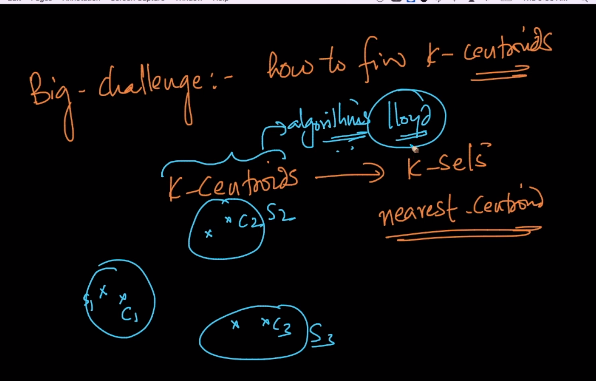 Big-challenge:- how to fin K-centroids
algorithms lloyd
K-centroids → K-sets
nearest-centroid
x x C2 S2
S1 x x C1
x x C3 S3